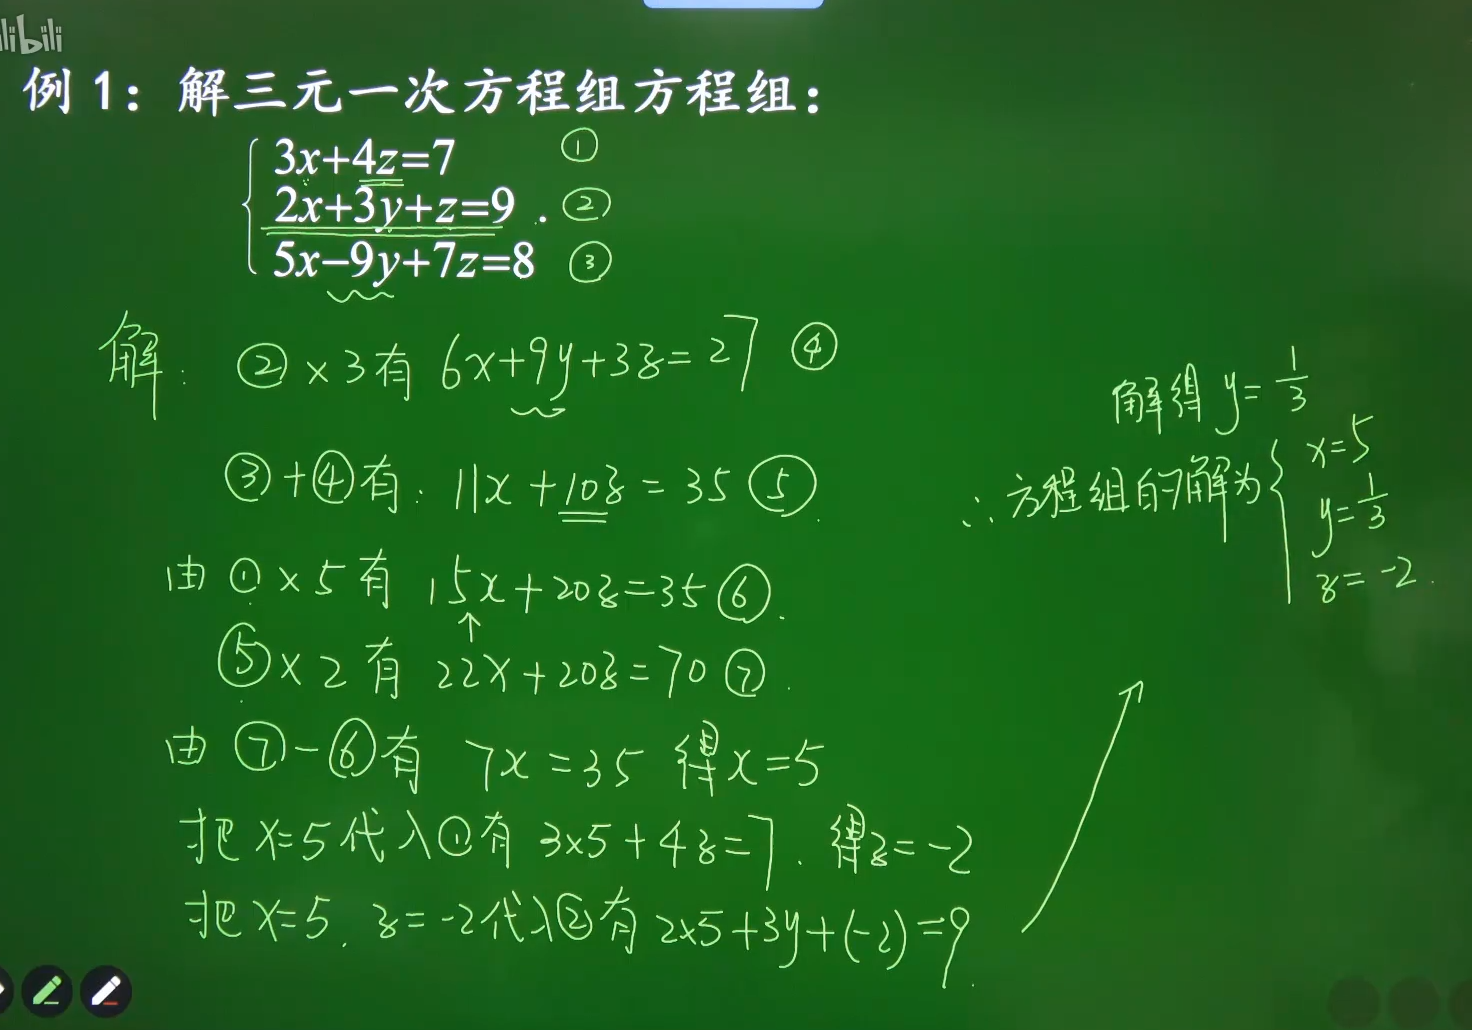 libili
例 1：解三元一次方程组方程组：
3x+4z=7 ①
2x+3y+z=9 . ②
5x−9y+7z=8 ③
解：②×3有 6x+9y+3z=27 ④
③+④有：11x+10z=35 ⑤.
由①×5有 15x+20z=35 ⑥.
⑤×2有 22x+20z=70 ⑦.
由⑦−⑥有 7x=35 得x=5
把x=5代入①有 3×5+4z=7. 得z=−2
把x=5. z=−2代入②有 2×5+3y+(−2)=9.
解得 y=1/3
∴方程组的解为 x=5
y=1/3
z=−2.